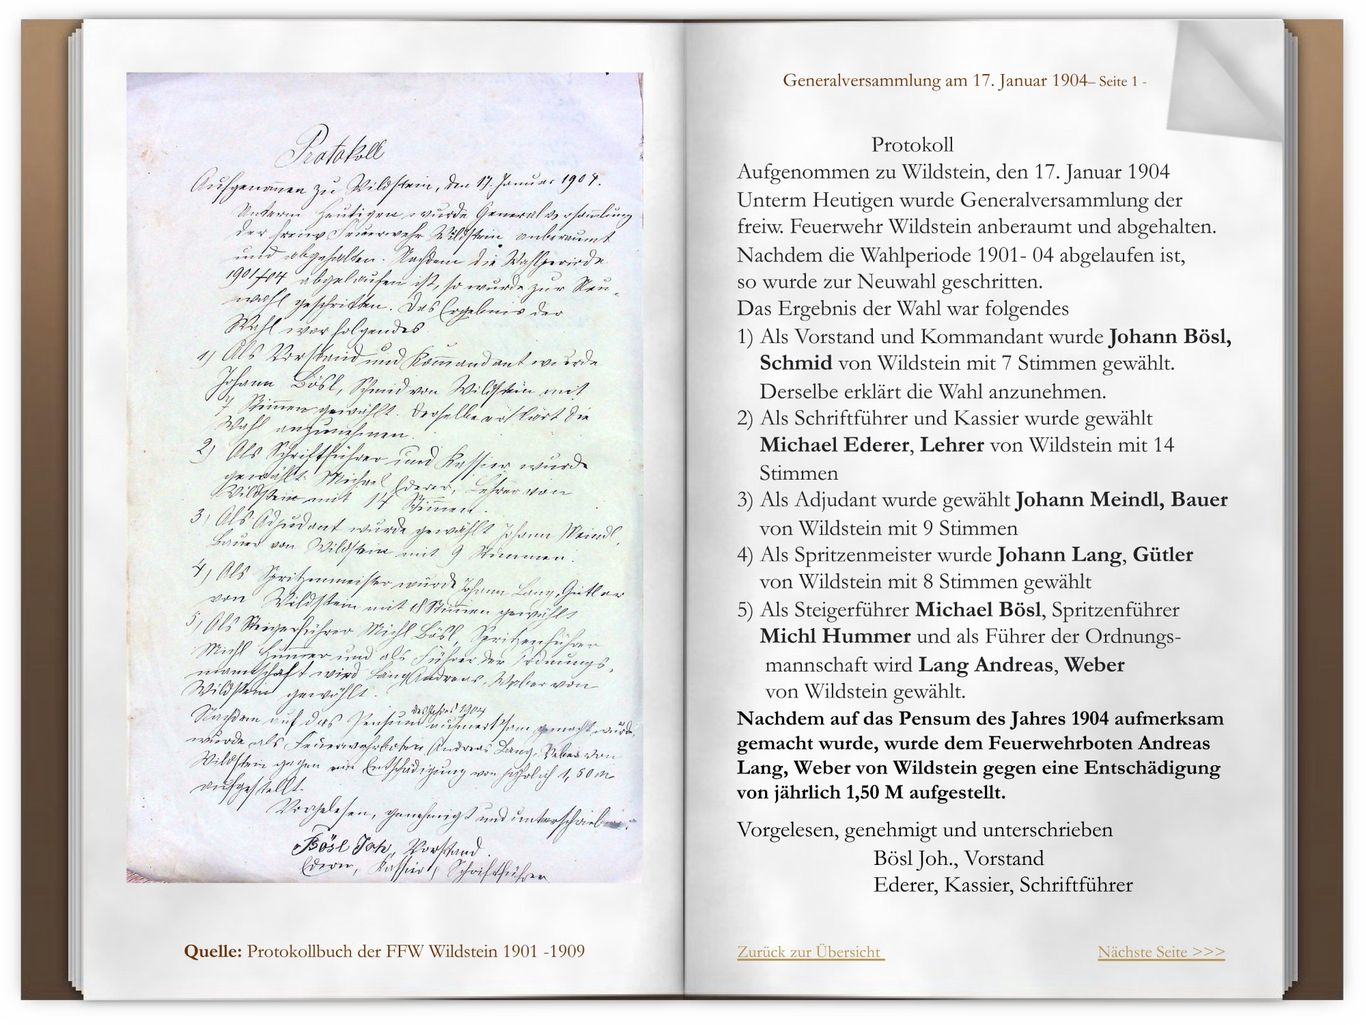 Protokoll
Aufgenommen zu Wildstein, den 17. Januar 1904.
Unterm Heutigen wurde Generalversammlung
der freiw. Feuerwehr Wildstein anberaumt
und abgehalten. Nachdem die Wahlperiode
1901/04 abgelaufen ist, so wurde zur Neu-
wahl geschritten. Das Ergebnis der
Wahl war folgendes
1) Als Vorstand und Kommandant wurde
Johann Bösl, Schmid von Wildstein mit
7 Stimmen gewählt. Derselbe erklärt die
Wahl anzunehmen.
2) Als Schriftführer und Kassier wurde
gewählt Michael Ederer, Lehrer von
Wildstein mit 14 Stimmen.
3) Als Adjudant wurde gewählt Johann Meindl,
Bauer von Wildstein mit 9 Stimmen.
4) Als Spritzenmeister wurde Johann Lang, Gütler
von Wildstein mit 8 Stimmen gewählt
5) Als Steigerführer Michl Bösl, Spritzenführer
Michl Hummer und als Führer der Ordnungs-
mannschaft wird Lang Andreas, Weber von
Wildstein gewählt.
des Jahres 1904
Nachdem auf das Pensum aufmerksam gemacht wurde,
wurde als Feuerwehrboten Andreas Lang, Weber von
Wildstein gegen eine Entschädigung von jährlich 1,50 M
aufgestellt.
Vorgelesen, genehmigt und unterschrieben.
Bösl Joh, Vorstand
Ederer, Kassier, Schriftführer
Quelle: Protokollbuch der FFW Wildstein 1901 -1909
Generalversammlung am 17. Januar 1904– Seite 1 -
Protokoll
Aufgenommen zu Wildstein, den 17. Januar 1904
Unterm Heutigen wurde Generalversammlung der
freiw. Feuerwehr Wildstein anberaumt und abgehalten.
Nachdem die Wahlperiode 1901- 04 abgelaufen ist,
so wurde zur Neuwahl geschritten.
Das Ergebnis der Wahl war folgendes
1) Als Vorstand und Kommandant wurde Johann Bösl,
Schmid von Wildstein mit 7 Stimmen gewählt.
Derselbe erklärt die Wahl anzunehmen.
2) Als Schriftführer und Kassier wurde gewählt
Michael Ederer, Lehrer von Wildstein mit 14
Stimmen
3) Als Adjudant wurde gewählt Johann Meindl, Bauer
von Wildstein mit 9 Stimmen
4) Als Spritzenmeister wurde Johann Lang, Gütler
von Wildstein mit 8 Stimmen gewählt
5) Als Steigerführer Michael Bösl, Spritzenführer
Michl Hummer und als Führer der Ordnungs-
mannschaft wird Lang Andreas, Weber
von Wildstein gewählt.
Nachdem auf das Pensum des Jahres 1904 aufmerksam
gemacht wurde, wurde dem Feuerwehrboten Andreas
Lang, Weber von Wildstein gegen eine Entschädigung
von jährlich 1,50 M aufgestellt.
Vorgelesen, genehmigt und unterschrieben
Bösl Joh., Vorstand
Ederer, Kassier, Schriftführer
Zurück zur Übersicht
Nächste Seite >>>